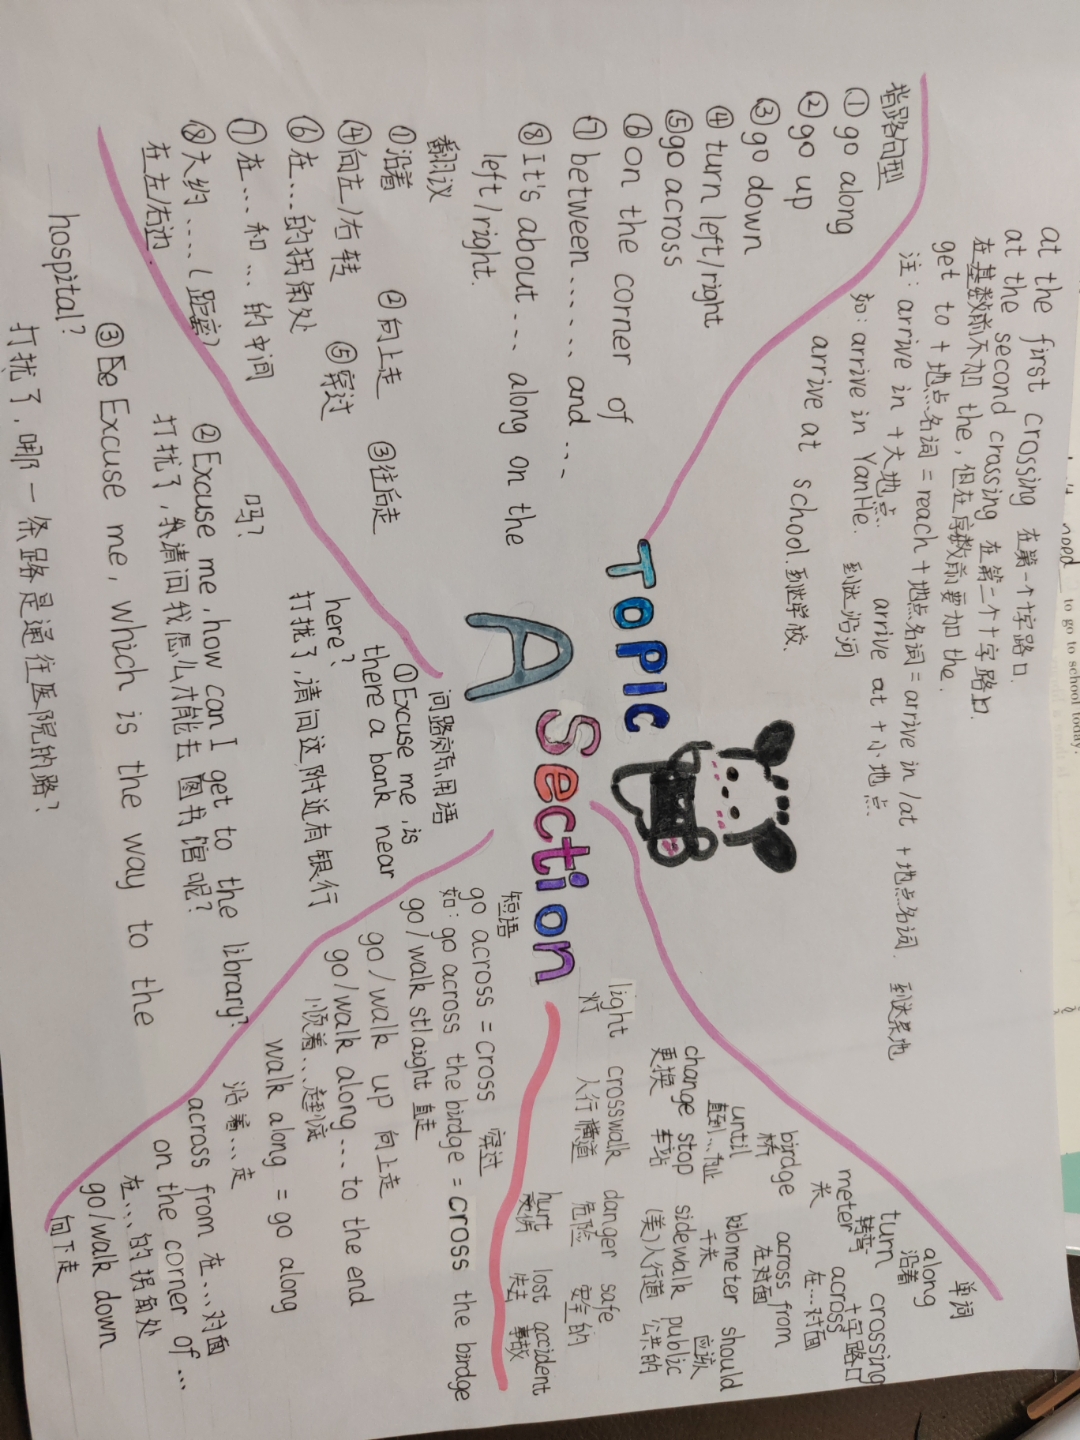 at the first crossing 在第一个十字路口.
at the second crossing 在第二个十字路口.
在基数前不加 the, 但在序数前要加 the.
get to + 地点名词 = reach + 地点名词 = arrive in /at + 地点名词. 到达某地
注: arrive in +大地点. arrive at +小地点.
如: arrive in YanHe. 到达沿河
arrive at school. 到达学校.
指路句型
① go along
② go up
③ go down
④ turn left/right
⑤ go across
⑥ on the corner of
⑦ between ...... and ...
⑧ It's about .... along on the
left/right.
翻议
①沿着 ②向上走 ③往后走
④向左/右转 ⑤穿过
⑥在...的拐角处
⑦在...和...的中间
⑧大约.....(距离)
在左/右边.
TOPIC
A Section
问路所用语
① Excuse me, is
there a bank near
here?
打扰了,请问这附近有银行
吗?
② Excuse me, how can I get to the library?
打扰了,我请问我怎么才能去图书馆呢?
③ Excuse me, which is the way to the
hospital?
打扰了,哪一条路是通往医院的路?
单词
along
沿着
turn crossing
转弯 十字路口
meter across
米 在...对面
birdge across from
桥 在对面
until kilometer should
直到...为止 千米 应该
change stop sidewalk public
更换 车站 (美)人行道 公共的
light crosswalk danger safe
灯 人行横道 危险 安全的
hurt lost accident
事故
短语
go across = cross 穿过
如: go across the birdge = cross the birdge
go/walk stlaight 直走
go/walk up 向上走
go/walk along ... to the end
顺着...走到底
walk along = go along
沿着...走
across from 在...对面
on the corner of ...
在...的拐角处
go/walk down
向下走
need
to go to school today.